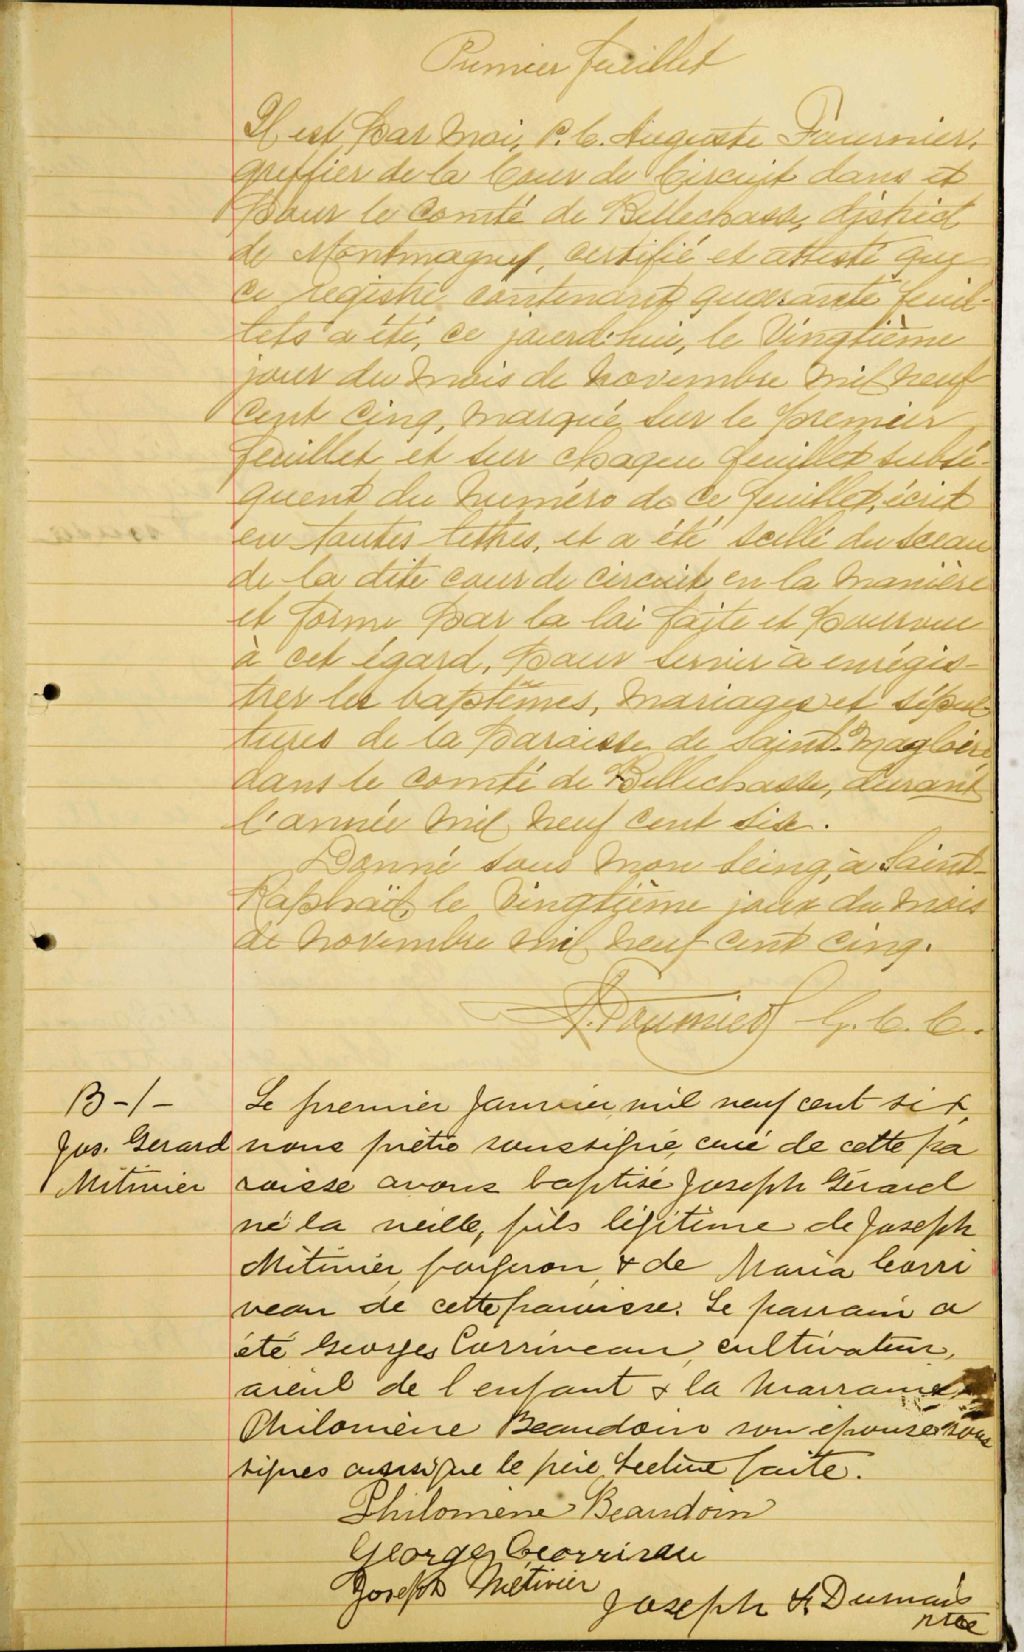 Premier feuillet
Il est par moi, P. C. Auguste Fournier,
greffier de la Cour de Circuit dans et
pour le Comté de Bellechasse, district
de Montmagny, certifié et attesté que
ce registre contenant quarante feuil-
lets a été, ce jourd'hui, le vingtième
jour du mois de novembre mil neuf
cent cinq, marqué sur le premier
feuillet et sur chaque feuillet subsé-
quent du numéro de ce feuillet, écrit
en toutes lettres, et a été scellé du sceau
de la dite cour de circuit, en la manière
et forme par la loi faite et pourvue
à cet égard, pour servir à enrégis-
trer les baptêmes, mariages et sépul-
tures de la paroisse de Saint-Magloire,
dans le comté de Bellechasse, durant
l'année mil neuf cent six.
Donné sous mon seing, à Saint-
Raphaël, le vingtième jour du mois
de novembre mil neuf cent cinq.
A. Fournier G. C. C.
B-1-
Jos. Gerard
Mitivier
Le premier Janvier mil neuf cent six,
nous prêtre soussigné, curé de cette pa
roisse avons baptisé Joseph Gérard
né la veille, fils légitime de Joseph
Mitivier, forgeron, & de Maria Corri
veau de cette paroisse. Le parrain a
été Georges Corriveau, cultivateur,
aieul de l'enfant & la marraine
Philomène Beaudoin son épouse sous
signés ainsi que le père. Lecture faite.
Philomène Beaudoin
George Corriveau
Joseph Métivier
Joseph F. Dumais
ptre